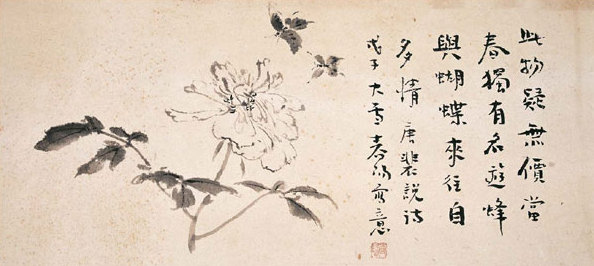 此物疑無價當
春獨有名遊蜂
與蝴蝶來往自
多情 唐裴說詩
戊子大雪 寫意